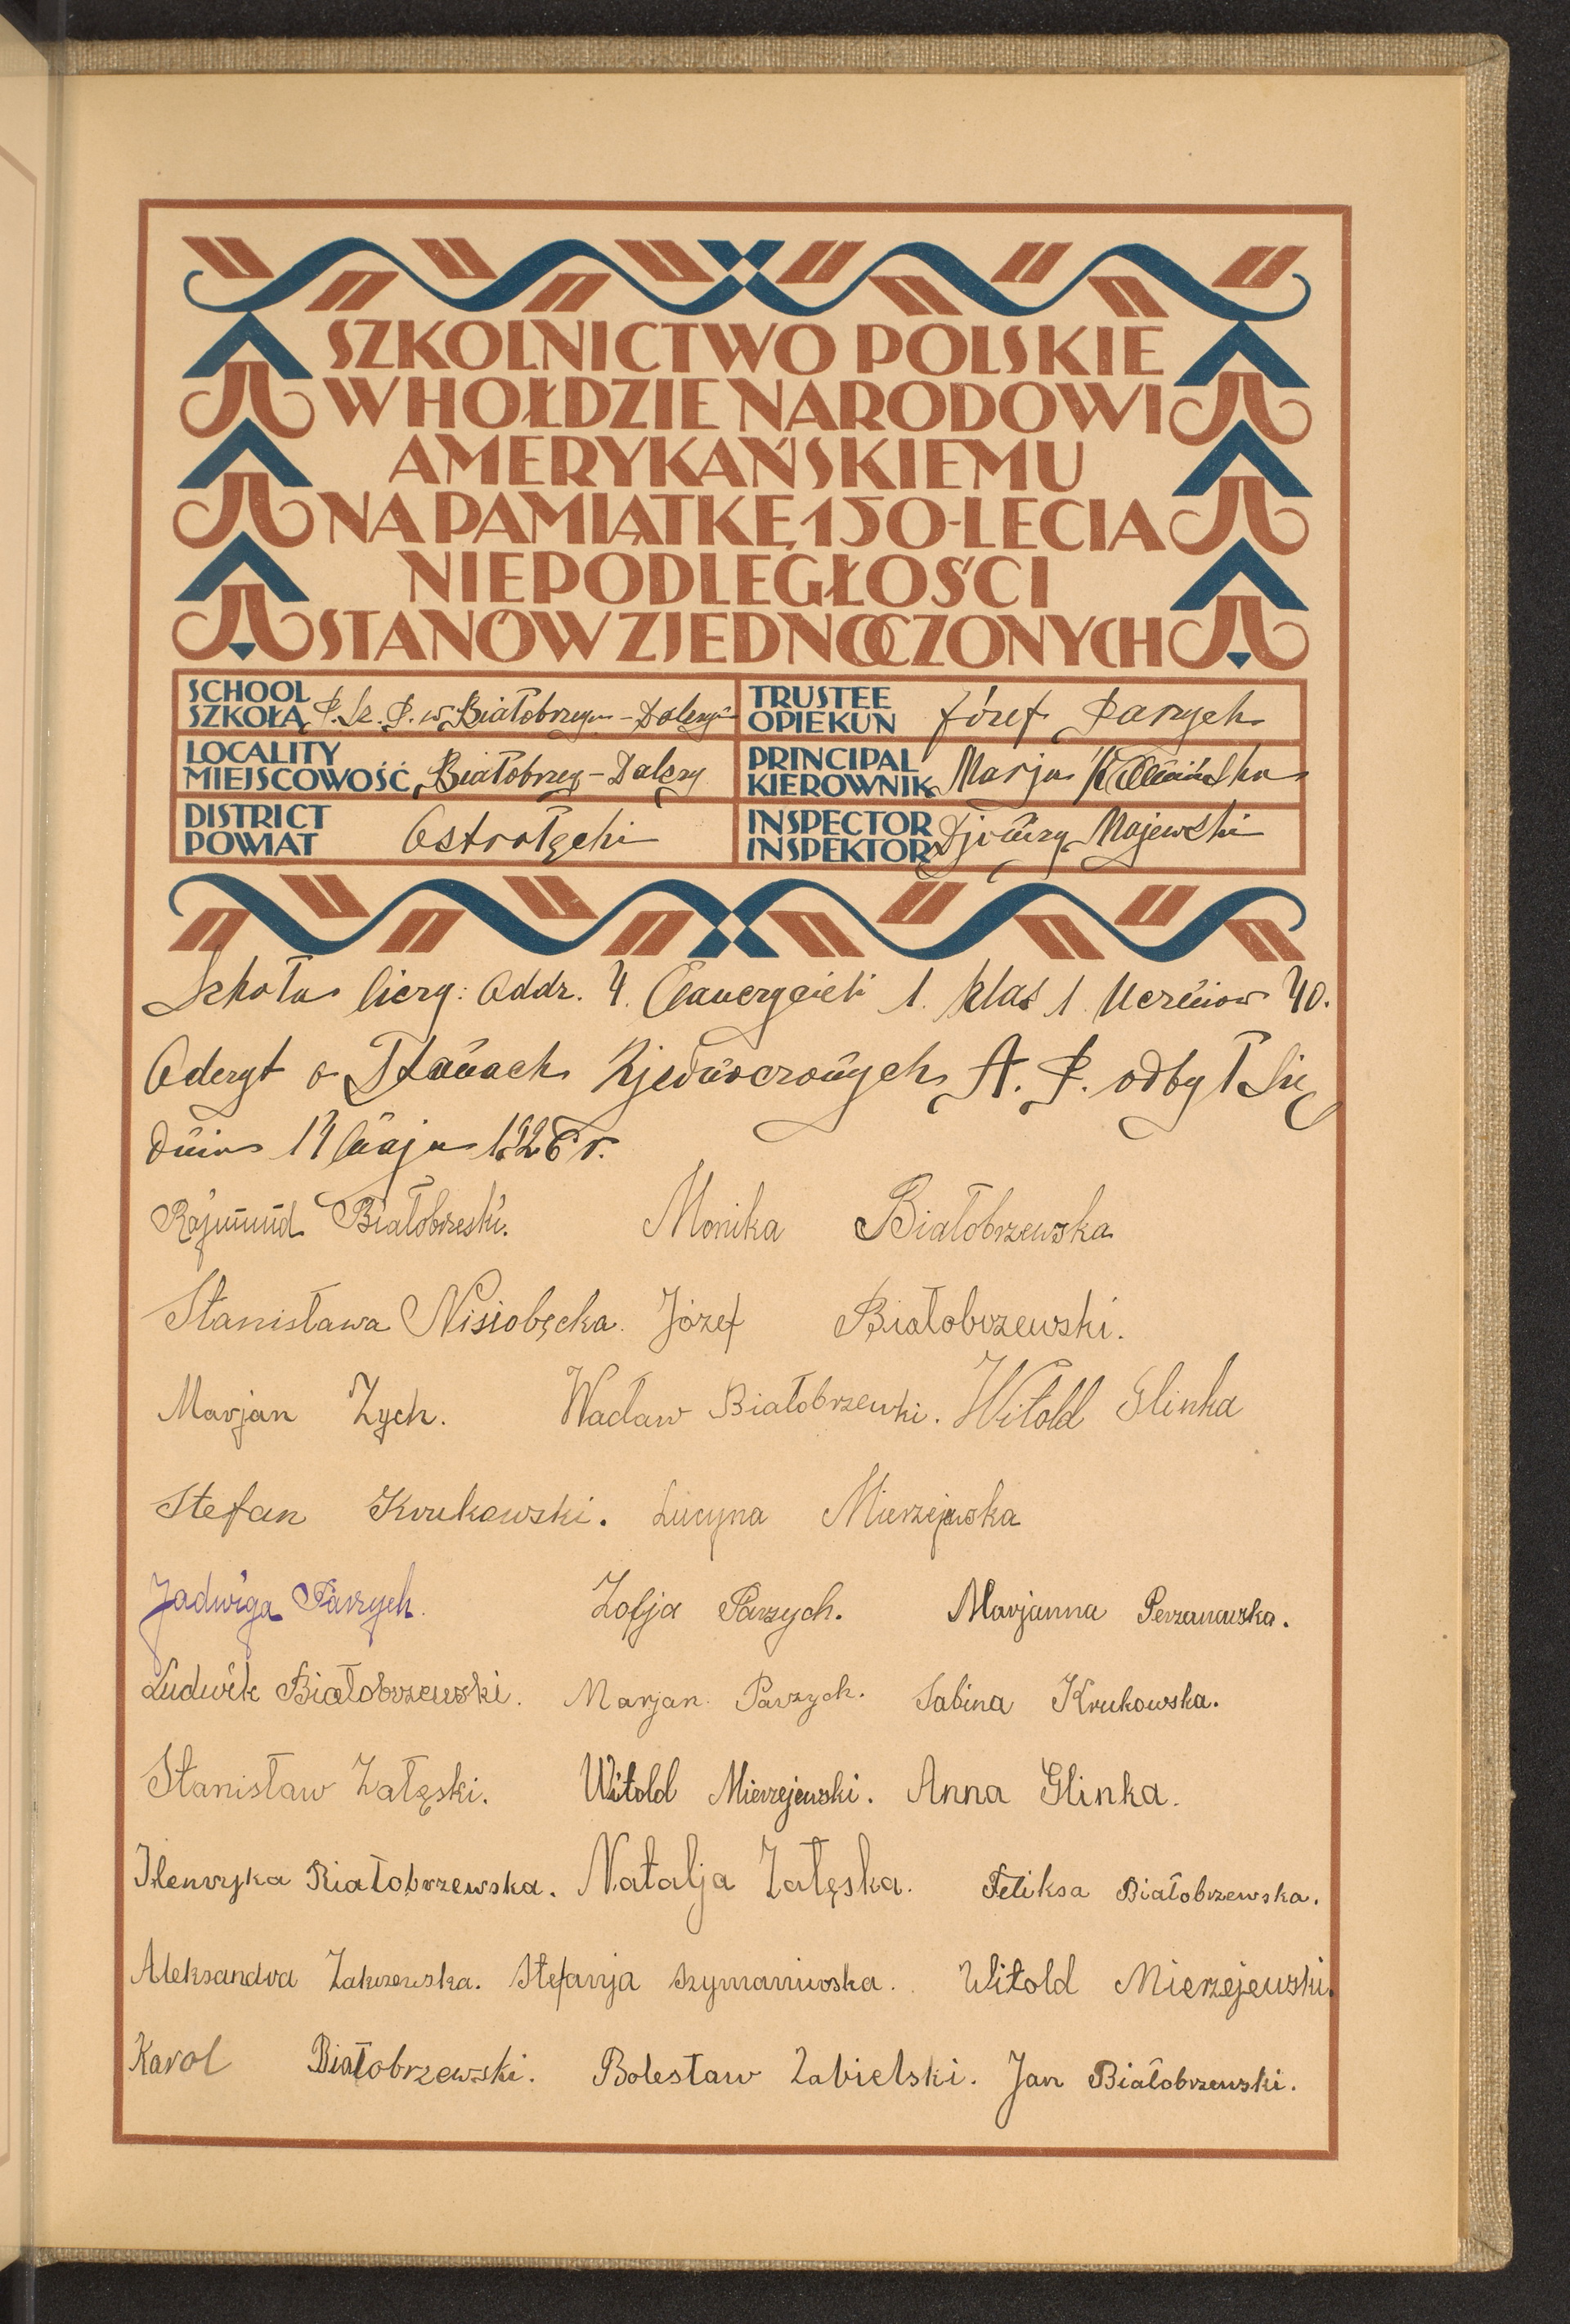 SZKOLNICTWO POLSKIE
W HOŁDZIE NARODOWI
AMERYKAŃSKIEMU
NA PAMIĄTKĘ 150-LECIA
NIEPODLEGŁOŚCI
STANÓW ZJEDNOCZONYCH
SCHOOL
SZKOŁA P. Sz. P. w Białobrzegu - Dalszym
TRUSTEE
OPIEKUN Józef Parzych
LOCALITY
MIEJSCOWOŚĆ Białobrzeg - Dalszy
PRINCIPAL
KIEROWNIK Marja
DISTRICT
POWIAT Ostrołęcki
INSPECTOR
INSPEKTOR Djonizy Majewski
Szkoła liczy: Oddz. 4. Nauczycieli 1. klas 1. Uczniów 40.
Odczyt o Stanach Zjednoczonych A. P. odbył się
dnia 14 maja 1926 r.
Rajmund Białobrzeski. Monika Białobrzewska
Stanisława Nisiobęcka. Józef Białobrzewski.
Marjan Zych. Wacław Białobrzewki. Witold Glinka
Stefan Krukowski. Lucyna Mierzejewska
Jadwiga Parzych. Zofja Parzych. Marjanna Perzanowska.
Ludwik Białobrzewski. Marjan Parzych. Sabina Krukowska.
Stanisław Załęski. Witold Mierzejewski. Anna Glinka.
Henryka Białobrzewska. Natalja Załęska. Feliksa Białobrzewska.
Aleksandra Zakrzewska. Stefanja Szymaniwska. Witold Mierzejewski.
Karol Białobrzewski. Bolesław Zabielski. Jan Białobrzewski.